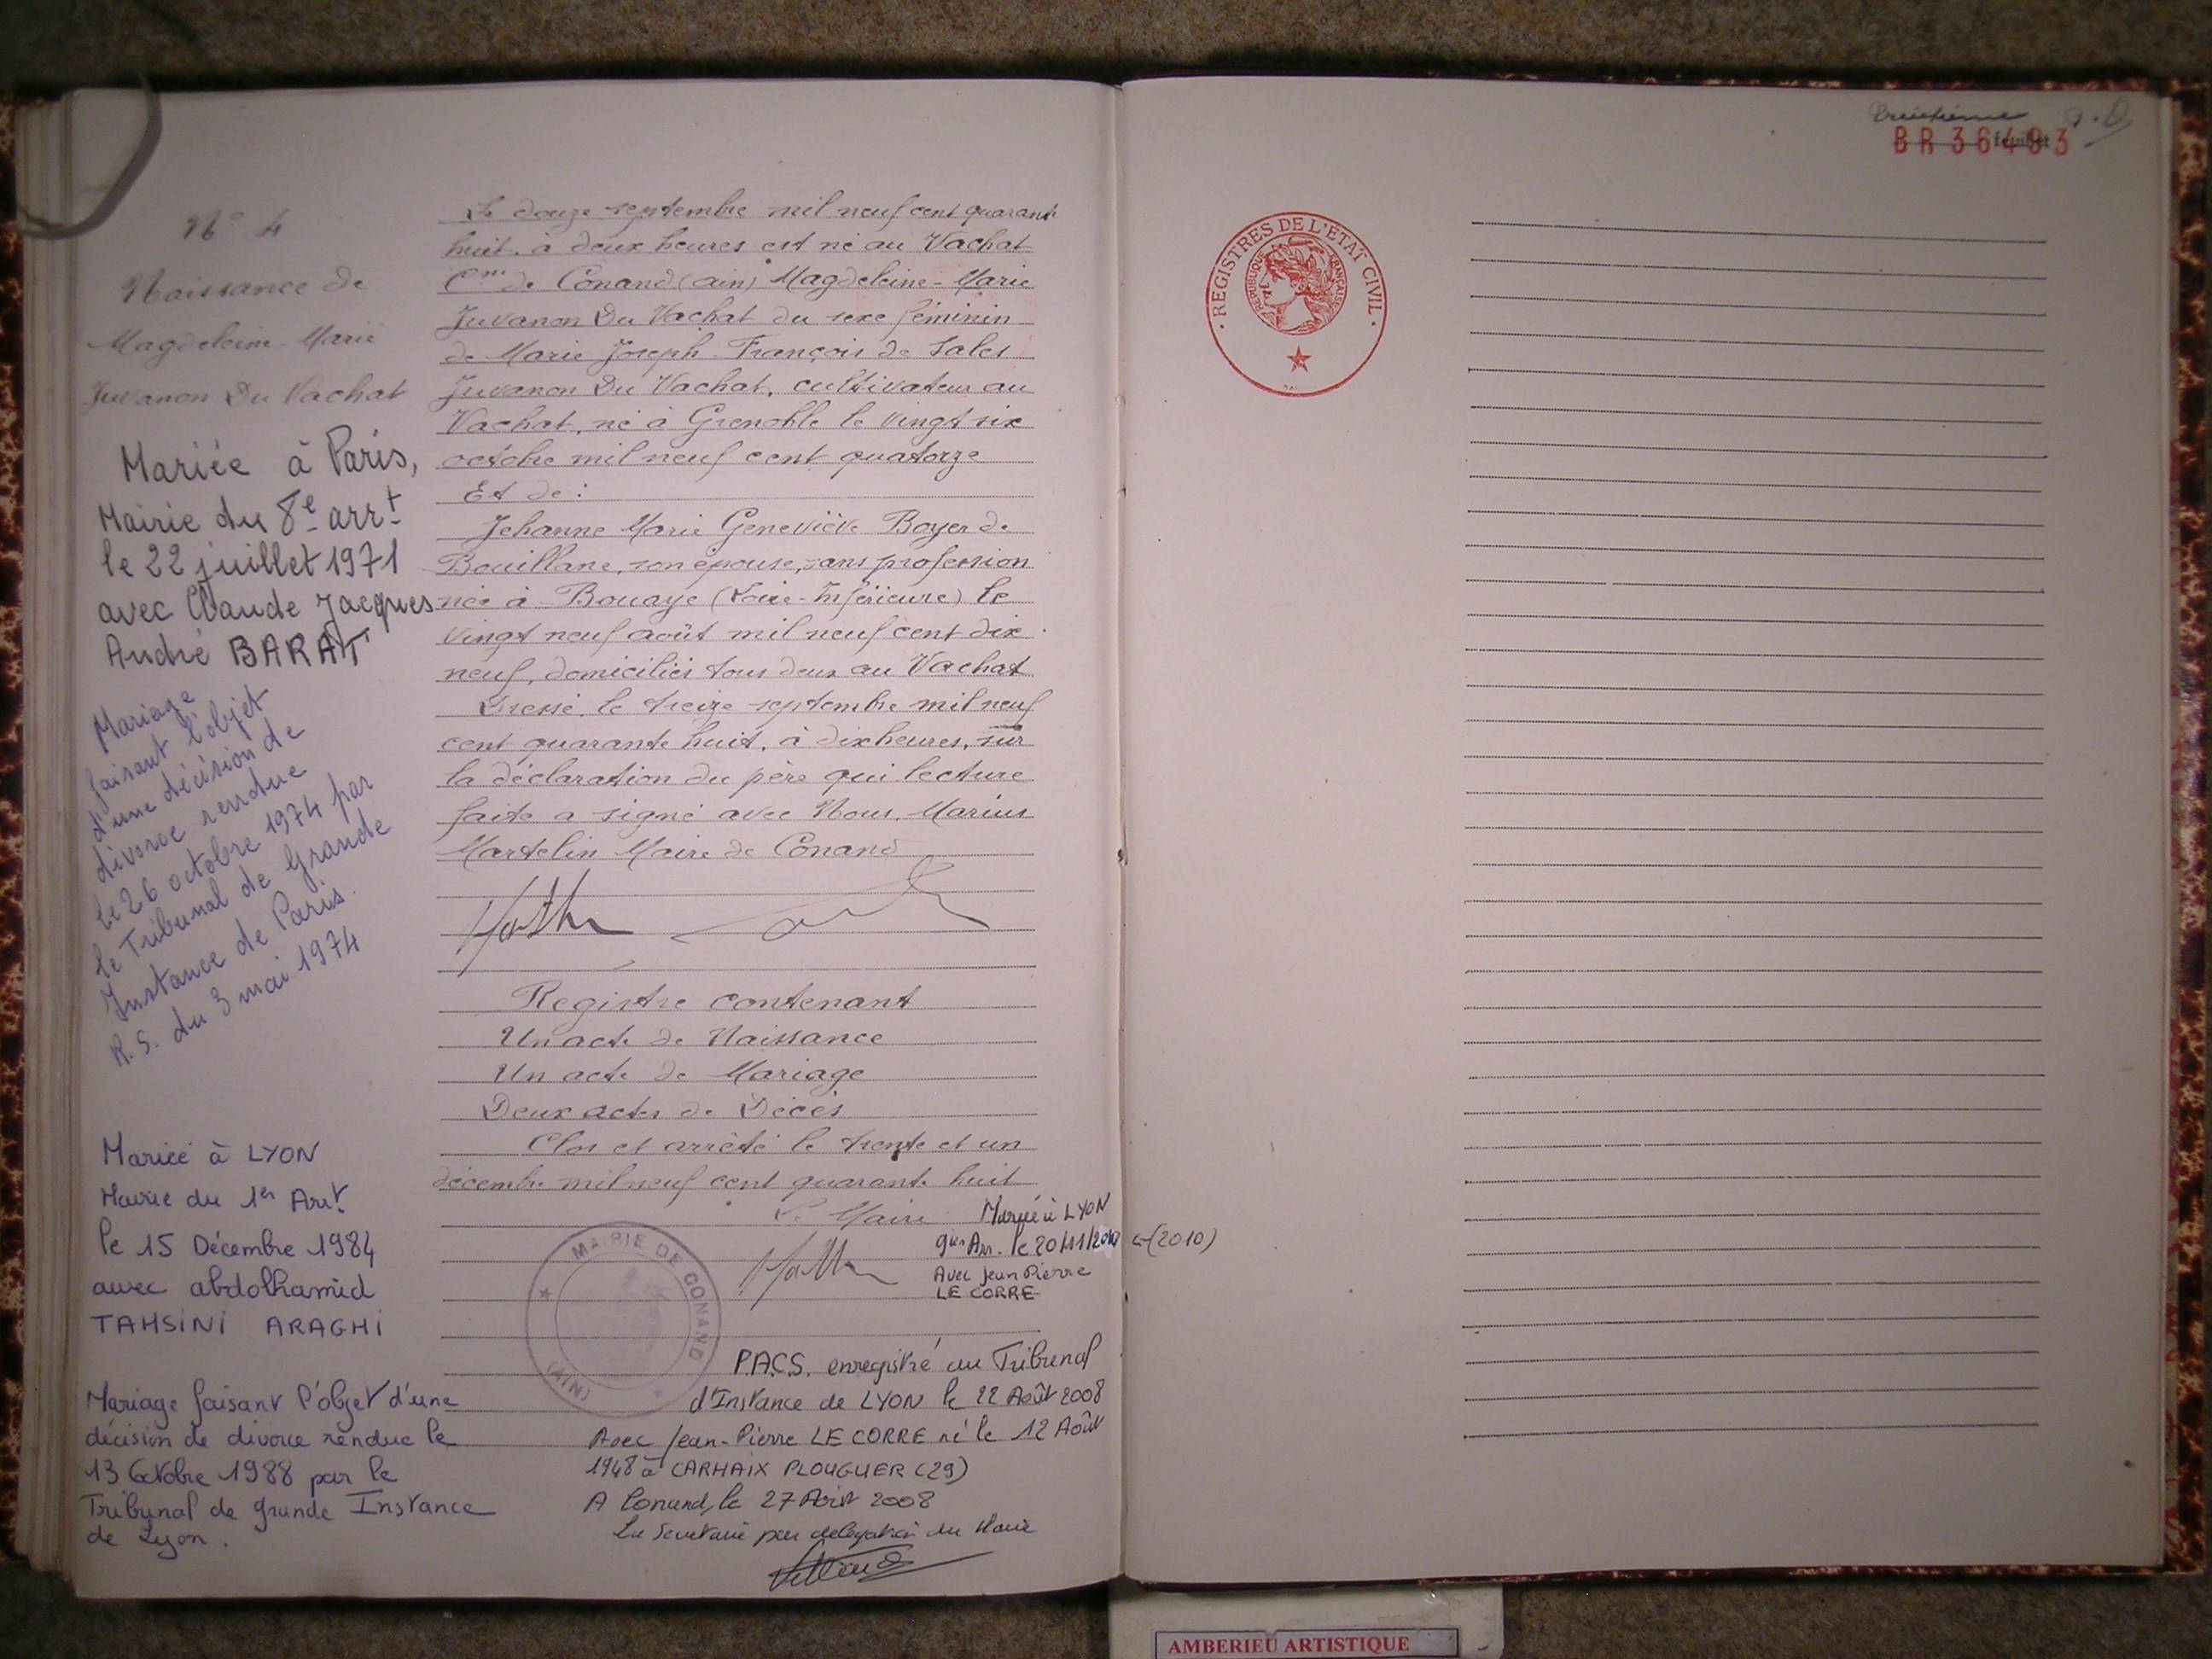 N° 4
Naissance de
Magdeleine-Marie
Juvanon Du Vachat
Mariée à Paris,
Mairie du 8e arrt
le 22 juillet 1971
avec Claude Jacques
André BARAT
Mariage
faisant l'objet
d'une décision de
divorce rendue
le 26 octobre 1974 par
le Tribunal de Grande
Instance de Paris.
R.S. du 3 mai 1974
Mariée à LYON
Mairie du 1er Arrt
le 15 Décembre 1984
avec abdolhamid
TAHSINI ARAGHI
Mariage faisant l'objet d'une
décision de divorce rendue le
13 Octobre 1988 par le
Tribunal de grande Instance
de Lyon.
Le douze septembre mil neuf cent quarante
huit, à deux heures est né au Vachat
Cne de Conand (ain) Magdeleine-Marie
Juvanon Du Vachat du sexe féminin
de Marie Joseph François de Sales
Juvanon Du Vachat, cultivateur au
Vachat, né à Grenoble le vingt six
octobre mil neuf cent quatorze
Et de :
Jehanne Marie Geneviève Boyer de
Bouillane, son épouse, sans profession
née à Bouaye (Loire-Inférieure) le
vingt neuf août mil neuf cent dix
neuf, domiciliés tous deux au Vachat
Dressé le treize septembre mil neuf
cent quarante huit, à dix heures, sur
la déclaration du père qui lecture
faite a signé avec Nous, Marius
Martelin Maire de Conand
Registre contenant
Un acte de Naissance
Un acte de Mariage
Deux actes de Décès
Clos et arrêté le trente et un
décembre mil neuf cent quarante huit
Le Maire
MAIRIE DE CONAND
(AIN)
Mariée à LYON
9ème Arr. le 20/11/2010 ←(2010)
Avec Jean Pierre
LE CORRE
P.A.C.S. enregistré au Tribunal
d'Instance de LYON le 22 Août 2008
Avec Jean-Pierre LE CORRE né le 12 Août
1948 à CARHAIX PLOUGUER (29)
A Conand, le 27 Août 2008
La Secrétaire par délégation du Maire
feuillet
BR 36403
REGISTRES DE L'ETAT CIVIL
REPUBLIQUE FRANÇAISE
AMBERIEU ARTISTIQUE